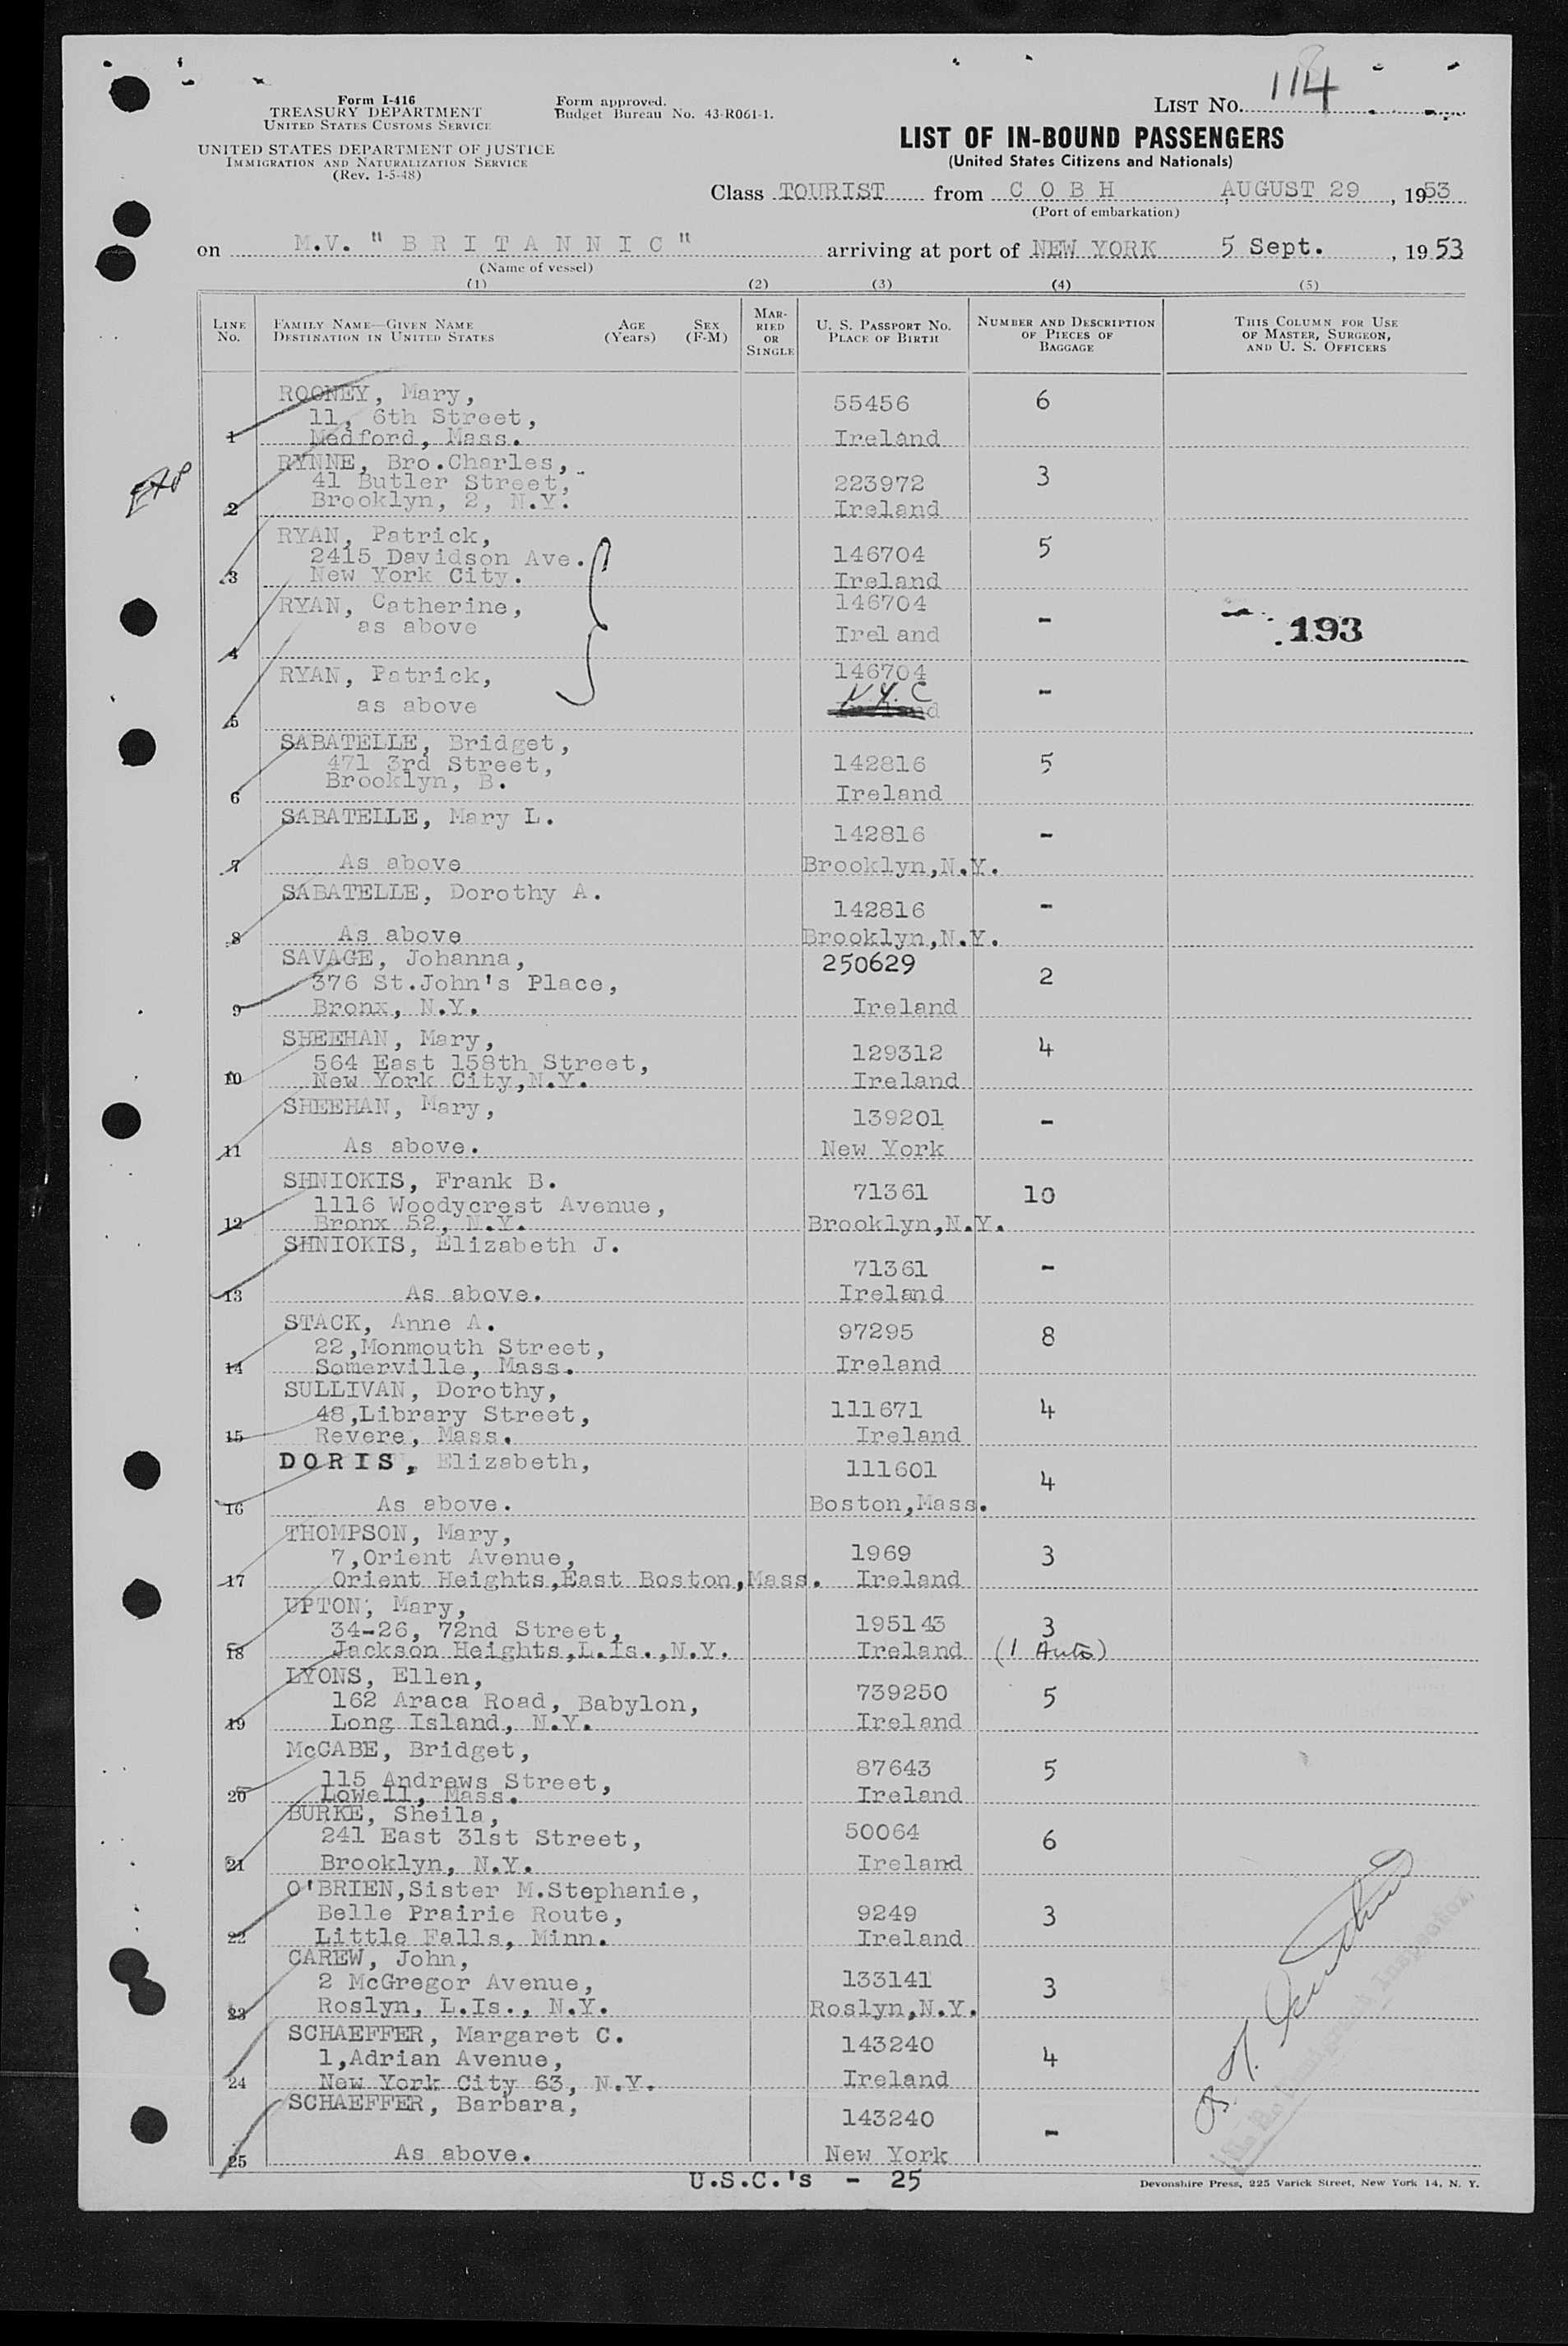 114
Form I-416
TREASURY DEPARTMENT
UNITED STATES CUSTOMS SERVICE
UNITED STATES DEPARTMENT OF JUSTICE
IMMIGRATION AND NATURALIZATION SERVICE
(Rev. 1-5-48)
Form approved.
Budget Bureau No. 43-R061-1.
LIST No.
LIST OF IN-BOUND PASSENGERS
(United States Citizens and Nationals)
Class TOURIST from C O B H, AUGUST 29, 1953
(Port of embarkation)
on M.V. "B R I T A N N I C" arriving at port of NEW YORK 5 Sept., 1953
(Name of vessel)
(1) (2) (3) (4) (5)
LINE No.
FAMILY NAME—GIVEN NAME
DESTINATION IN UNITED STATES
AGE (Years)
SEX (F-M)
MARRIED OR SINGLE
U. S. PASSPORT No.
PLACE OF BIRTH
NUMBER AND DESCRIPTION OF PIECES OF BAGGAGE
THIS COLUMN FOR USE OF MASTER, SURGEON, AND U. S. OFFICERS
ROONEY, Mary, 55456 6
11, 6th Street,
1 Medford, Mass. Ireland
RYNNE, Bro.Charles,
41 Butler Street, 223972 3
2 Brooklyn, 2, N.Y. Ireland
RYAN, Patrick,
2415 Davidson Ave. 146704 5
3 New York City. Ireland
RYAN, Catherine, 146704
as above Ireland -
4 193
RYAN, Patrick, 146704
N.Y.C -
as above Ireland
5
SABATELLE, Bridget,
471 3rd Street, 142816 5
Brooklyn, B. Ireland
6
SABATELLE, Mary L. 142816 -
7 As above Brooklyn,N.Y.
SABATELLE, Dorothy A. 142816 -
8 As above Brooklyn,N.Y.
SAVAGE, Johanna, 250629
376 St.John's Place, 2
9 Bronx, N.Y. Ireland
SHEEHAN, Mary, 129312 4
564 East 158th Street,
10 New York City,N.Y. Ireland
SHEEHAN, Mary, 139201 -
11 As above. New York
SHNIOKIS, Frank B. 71361 10
1116 Woodycrest Avenue,
12 Bronx 52, N.Y. Brooklyn,N.Y.
SHNIOKIS, Elizabeth J. 71361 -
13 As above. Ireland
STACK, Anne A. 97295 8
22,Monmouth Street,
14 Somerville, Mass. Ireland
SULLIVAN, Dorothy,
48,Library Street, 111671 4
15 Revere, Mass. Ireland
DORIS, Elizabeth, 111601 4
16 As above. Boston,Mass.
THOMPSON, Mary,
7,Orient Avenue, 1969 3
17 Orient Heights,East Boston,Mass. Ireland
UPTON, Mary,
34-26, 72nd Street, 195143 3
18 Jackson Heights,L.Is.,N.Y. Ireland (1 Auto)
LYONS, Ellen,
162 Araca Road, Babylon, 739250 5
19 Long Island, N.Y. Ireland
McCABE, Bridget, 87643 5
115 Andrews Street,
20 Lowell, Mass. Ireland
BURKE, Sheila,
241 East 31st Street, 50064 6
21 Brooklyn, N.Y. Ireland
O'BRIEN,Sister M.Stephanie,
Belle Prairie Route, 9249 3
22 Little Falls, Minn. Ireland
CAREW, John,
2 McGregor Avenue, 133141 3
23 Roslyn, L.Is., N.Y. Roslyn,N.Y.
SCHAEFFER, Margaret C. 143240
1,Adrian Avenue, 4
24 New York City 63, N.Y. Ireland
SCHAEFFER, Barbara, 143240 -
25 As above. New York
U.S.C.'s - 25
Immigrant Inspector
Devonshire Press, 225 Varick Street, New York 14, N. Y.